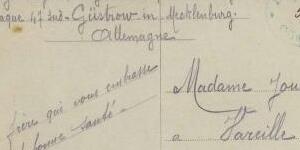 aque 47 sud - Güstrow - in - Mecklenburg
Allemagne
frère qui vous embrasse
bonne santé.
Madame Jou
a Vareille